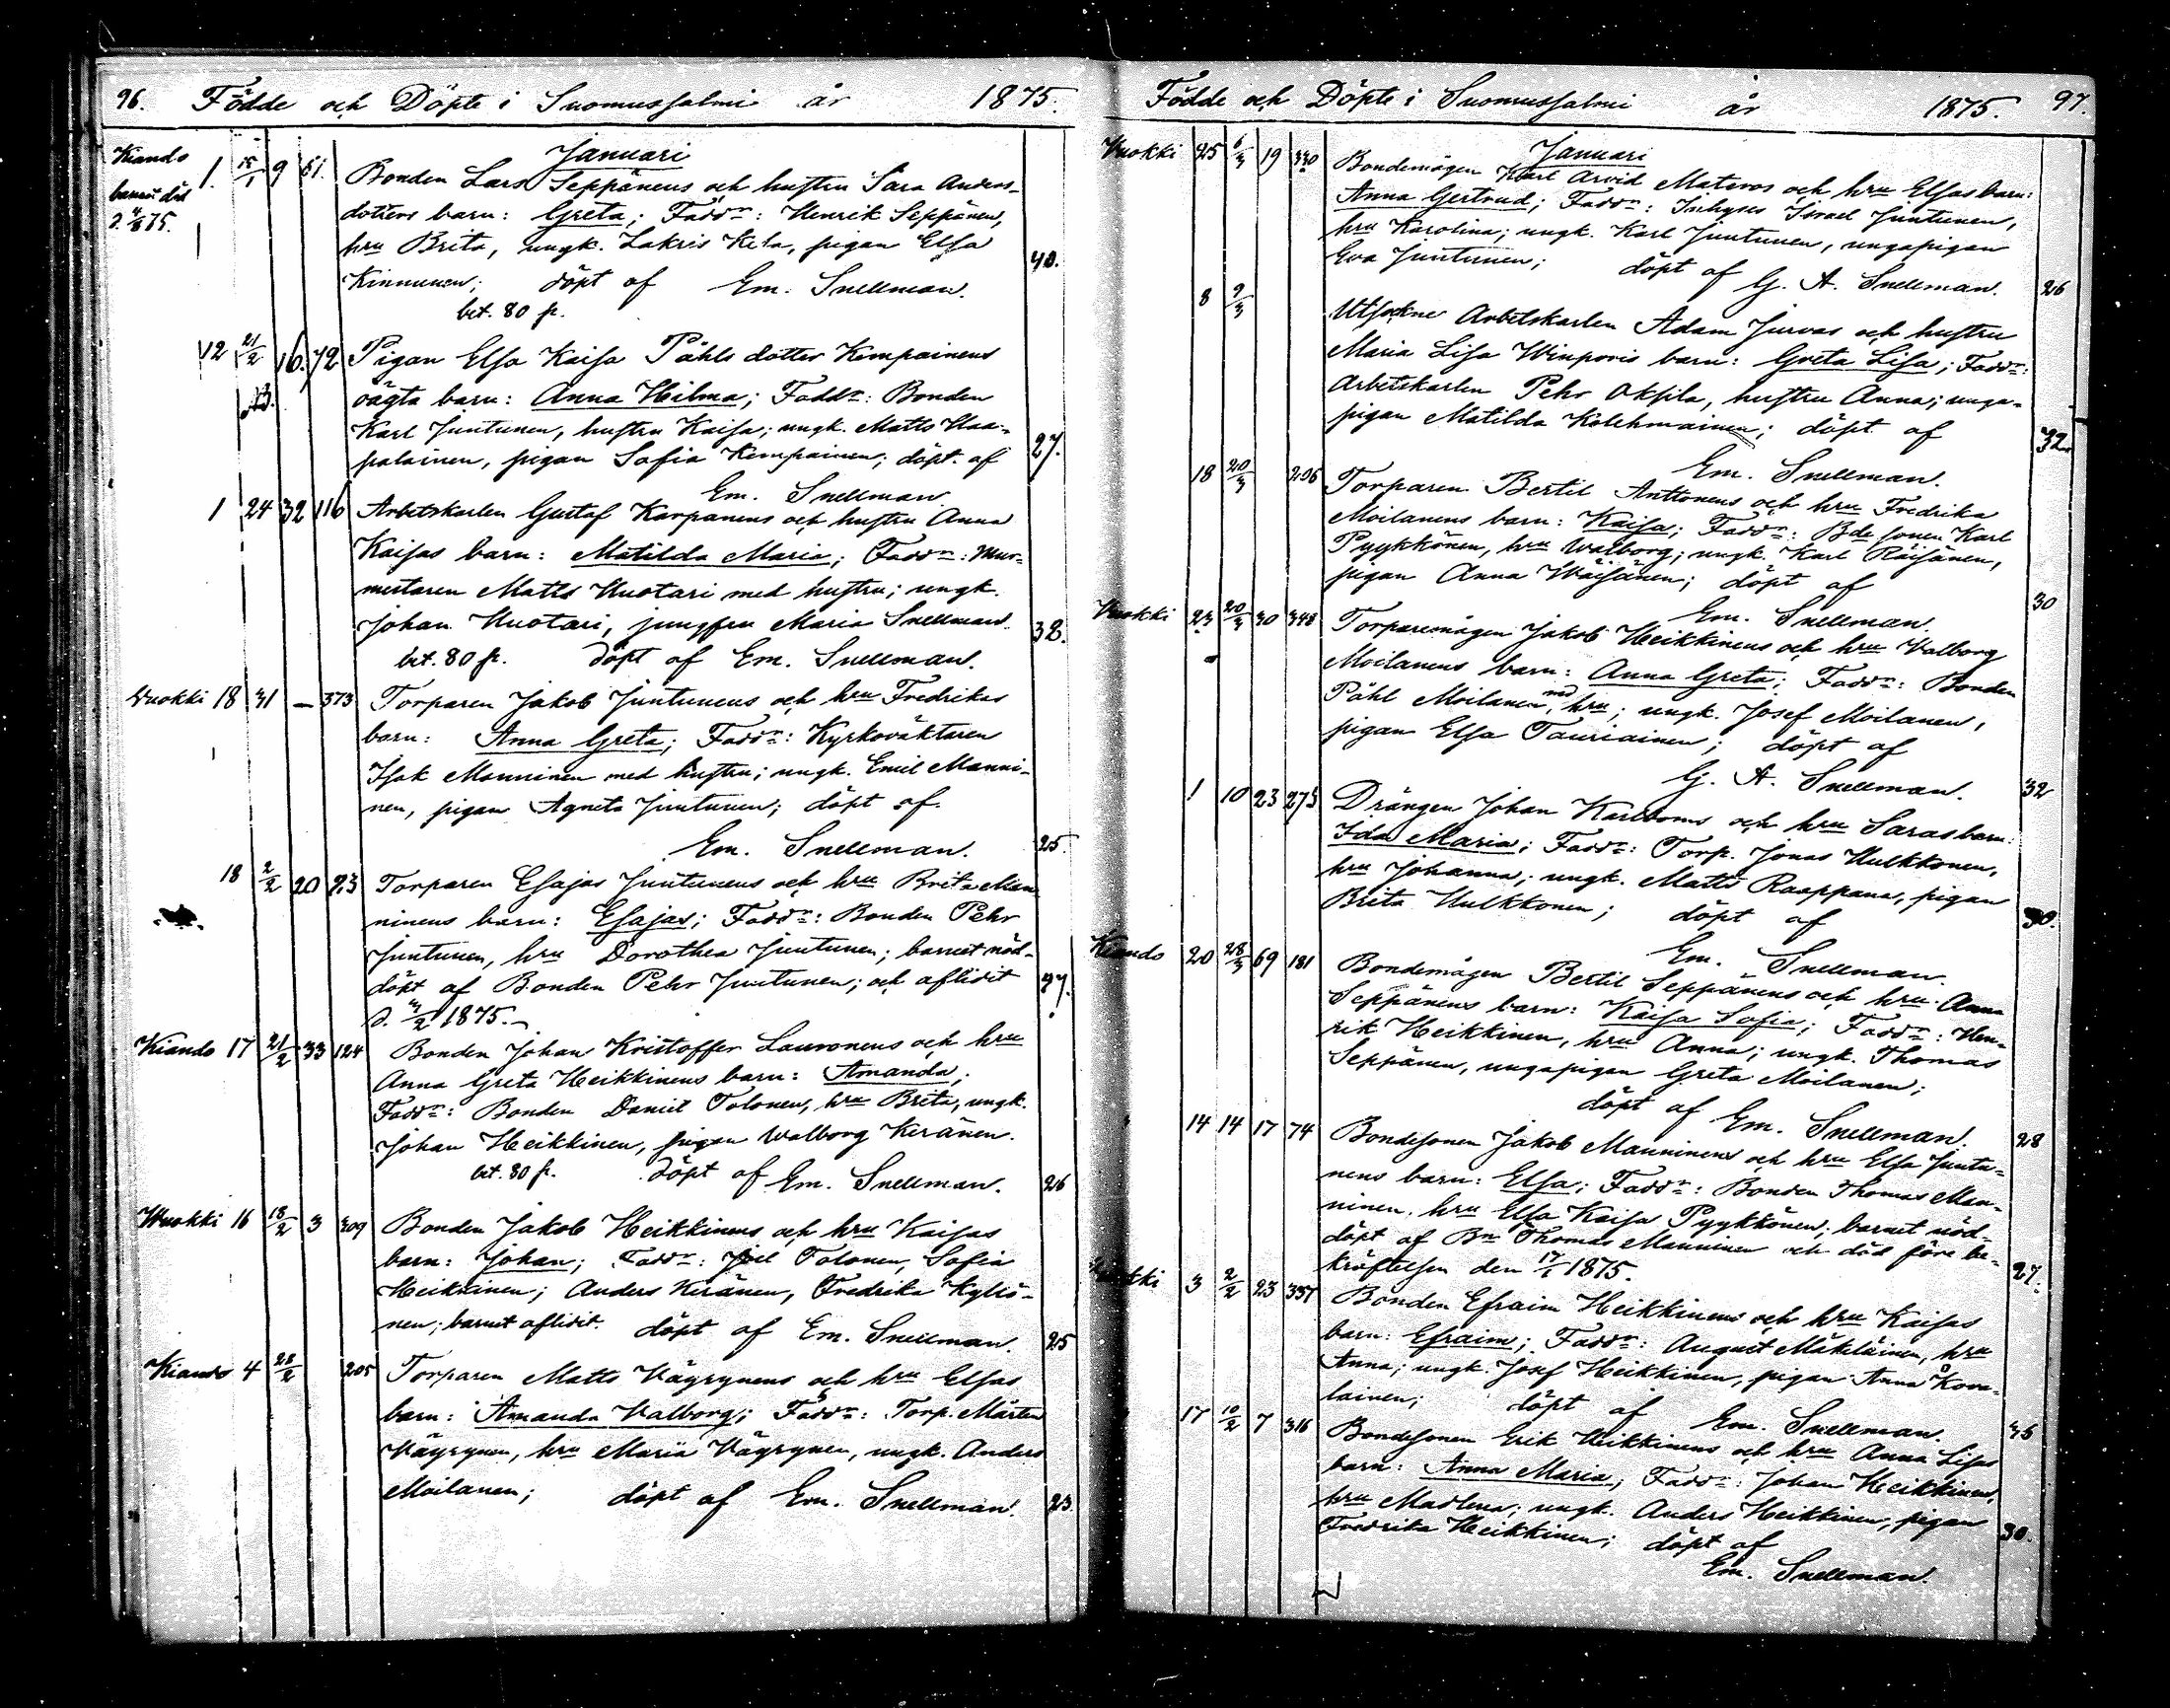 96. Födde och Döpte i Suomussalmi år 1875.
Januari
Kiando 1. 15/1 9 61. Bonden Lars Seppänens och hustru Sara Anders-
barnet död dotters barn: Greta; Faddr: Henrik Seppänen,
hru Brita, ungk. Zakris Kela, pigan Elsa
Kinnunen; döpt af Em. Snellman. 40.
bet. 80 p.
12 21/2 16. 72 Pigan Elsa Kaisa Påhls dotter Kempainens
oägta barn: Anna Hilma; Faddr: Bonden
Karl Juntunen, hustru Kaisa; ungk. Matts Haa-
palainen, pigan Sofia Kempainen; döpt af 27.
Em. Snellman
1 24 32 116 Arbetskarlen Gustaf Karpanens och hustru Anna
Kaisas barn: Matilda Maria; Faddr: Mur-
mestaren Matts Huotari med hustru; ungk.
Johan Huotari, jungfru Maria Snellman. 32.
bet. 80 p. döpt af Em. Snellman.
Vuokki 18 31 — 373 Torparen Jakob Juntunens och hru Fredrikas
barn: Anna Greta; Faddr: Kyrkoväktaren
Isak Manninen med hustru; ungk. Emil Manni-
nen, pigan Agneta Juntunen; döpt af
Em. Snellman. 25.
18 2/2 20 93 Torparen Esajas Juntunens och hru Brita Man-
ninens barn: Esajas; Faddr: Bonden Pehr
Juntunen, hru Dorothea Juntunen; barnet nöd-
döpt af Bonden Pehr Juntunen; och aflidit 27.
1875.
Kiando 17 21/2 33 124 Bonden Johan Kristoffer Lauronens och hru
Anna Greta Heikkinens barn: Amanda;
Faddr: Bonden Daniel Tolonen, hru Brita, ungk.
Johan Heikkinen, pigan Walborg Keränen.
bet. 80 p. döpt af Em. Snellman. 26
Wuokki 16 18/2 3 309 Bonden Jakob Heikkinens och hru Kaisas
barn: Johan; Faddr: Joel Tolonen, Sofia
Heikkinen; Anders Keränen, Fredrika Kyliö-
nen; barnet aflidit. döpt af Em. Snellman. 25
Kiando 4 28/2 205 Torparen Matts Väyrynens och hru Elsas
barn: Amanda Valborg; Faddr: Torp. Mårten
Väyrynen, hru Maria Väyrynen, ungk. Anders
Moilanen; döpt af Em. Snellman. 23.
Födde och Döpte i Suomussalmi år 1875. 97.
Januari
Vuokki 25 6/3 19 330 Bondemågen Karl Arvid Materos och hru Elsas barn:
Anna Gertrud; Faddr: Inhyses Israel Juntunen,
hru Karolina; ungk. Karl Juntunen, ungapigan
Eva Juntunen; döpt af G. A. Snellman. 26
8 9/3 Utsockne Arbetskarlen Adam Jurvas och hustru
Maria Lisa Winporis barn: Greta Lisa; Faddr:
Arbetskarlen Pehr Oksila, hustru Anna; unga-
pigan Matilda Kolehmainen; döpt af 32.
Em. Snellman.
18 20/3 206 Torparen Bertil Anttonens och hru Fredrika
Moilanens barn: Kaisa; Faddr: Bdesonen Karl
Pyykkönen, hru Walborg; ungk. Karl Räisänen,
pigan Anna Wäisänen; döpt af 30
Em. Snellman.
Vuokki 23 20/3 30 348 Torparemågen Jakob Heikkinens och hru Valborg
Moilanens barn: Anna Greta; Faddr: Bonden
Påhl Moilanen, med hru; ungk. Josef Moilanen,
pigan Elsa Tauriainen; döpt af
G. A. Snellman. 32
1 10 23 275 Drängen Johan Karlboms och hru Saras barn:
Ida Maria; Faddr: Torp. Jonas Hulkkonen,
hru Johanna; ungk. Matts Raappana, pigan
Brita Hulkkonen; döpt af 30.
Em. Snellman.
Kiando 20 28/3 69 181 Bondemågen Bertil Seppänens och hru Anna
Seppänens barn: Kaisa Sofia; Faddr: Hen-
rik Heikkinen, hru Anna; ungk. Thomas
Seppänen, ungapigan Greta Moilanen;
döpt af Em. Snellman. 28
14 14 17 74 Bondesonen Jakob Manninens och hru Elsa Juntu-
nens barn: Elsa; Faddr: Bonden Thomas Man-
ninen, hru Elsa Kaisa Pyykkönen; barnet nöd-
döpt af Bn Thomas Manninen och död före be-
kräftelsen den 17/1 1875. 27.
3 2/2 23 337 Bonden Efraim Heikkinens och hru Kaisas
barn: Efraim; Faddr: August Mäkeläinen, hru
Anna; ungk. Josef Heikkinen, pigan Anna Kova-
lainen; döpt af Em. Snellman. 35
17 10/2 7 316 Bondesonen Erik Heikkinens och hru Anna Lisas
barn: Anna Maria; Faddr: Johan Heikkinen,
hru Madlena; ungk. Anders Heikkinen, pigan
Fredrika Heikkinen; döpt af 30.
Em. Snellman.